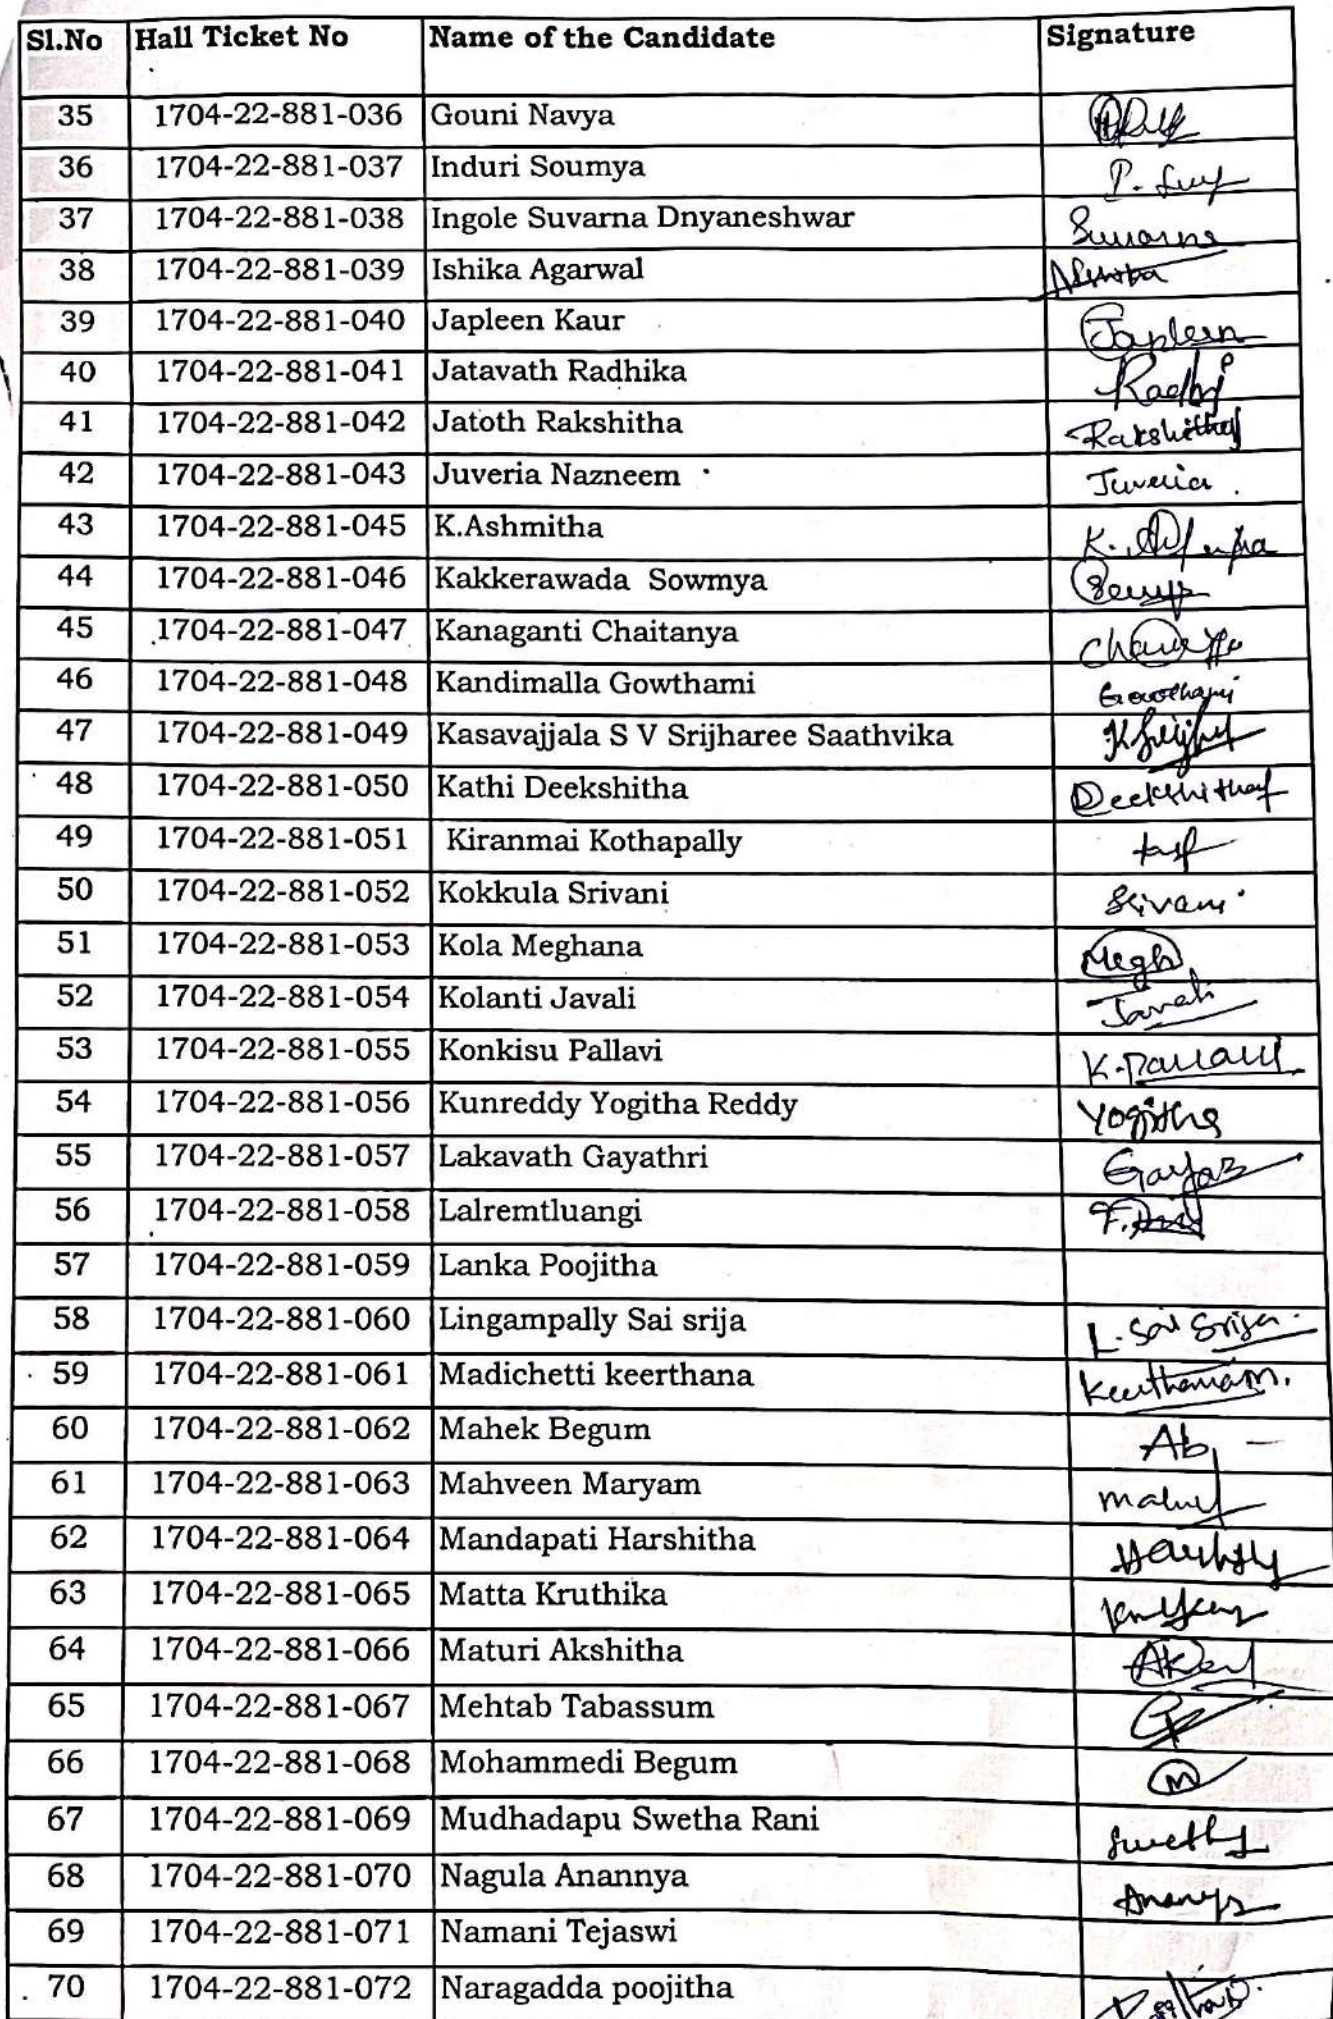 Sl.No Hall Ticket No Name of the Candidate Signature
35 1704-22-881-036 Gouni Navya
36 1704-22-881-037 Induri Soumya
37 1704-22-881-038 Ingole Suvarna Dnyaneshwar Suvarna
38 1704-22-881-039 Ishika Agarwal
39 1704-22-881-040 Japleen Kaur Japleen
40 1704-22-881-041 Jatavath Radhika
41 1704-22-881-042 Jatoth Rakshitha Rakshitha
42 1704-22-881-043 Juveria Nazneem Juveria
43 1704-22-881-045 K.Ashmitha
44 1704-22-881-046 Kakkerawada Sowmya
45 1704-22-881-047 Kanaganti Chaitanya
46 1704-22-881-048 Kandimalla Gowthami Gowthami
47 1704-22-881-049 Kasavajjala S V Srijharee Saathvika
48 1704-22-881-050 Kathi Deekshitha Deekshitha
49 1704-22-881-051 Kiranmai Kothapally
50 1704-22-881-052 Kokkula Srivani Srivani
51 1704-22-881-053 Kola Meghana Megh
52 1704-22-881-054 Kolanti Javali Javali
53 1704-22-881-055 Konkisu Pallavi K.Pallavi
54 1704-22-881-056 Kunreddy Yogitha Reddy Yogitha
55 1704-22-881-057 Lakavath Gayathri
56 1704-22-881-058 Lalremtluangi
57 1704-22-881-059 Lanka Poojitha
58 1704-22-881-060 Lingampally Sai srija L. Sai Srija
59 1704-22-881-061 Madichetti keerthana Keerthana M.
60 1704-22-881-062 Mahek Begum Ab
61 1704-22-881-063 Mahveen Maryam
62 1704-22-881-064 Mandapati Harshitha
63 1704-22-881-065 Matta Kruthika
64 1704-22-881-066 Maturi Akshitha
65 1704-22-881-067 Mehtab Tabassum
66 1704-22-881-068 Mohammedi Begum M
67 1704-22-881-069 Mudhadapu Swetha Rani
68 1704-22-881-070 Nagula Anannya
69 1704-22-881-071 Namani Tejaswi
70 1704-22-881-072 Naragadda poojitha